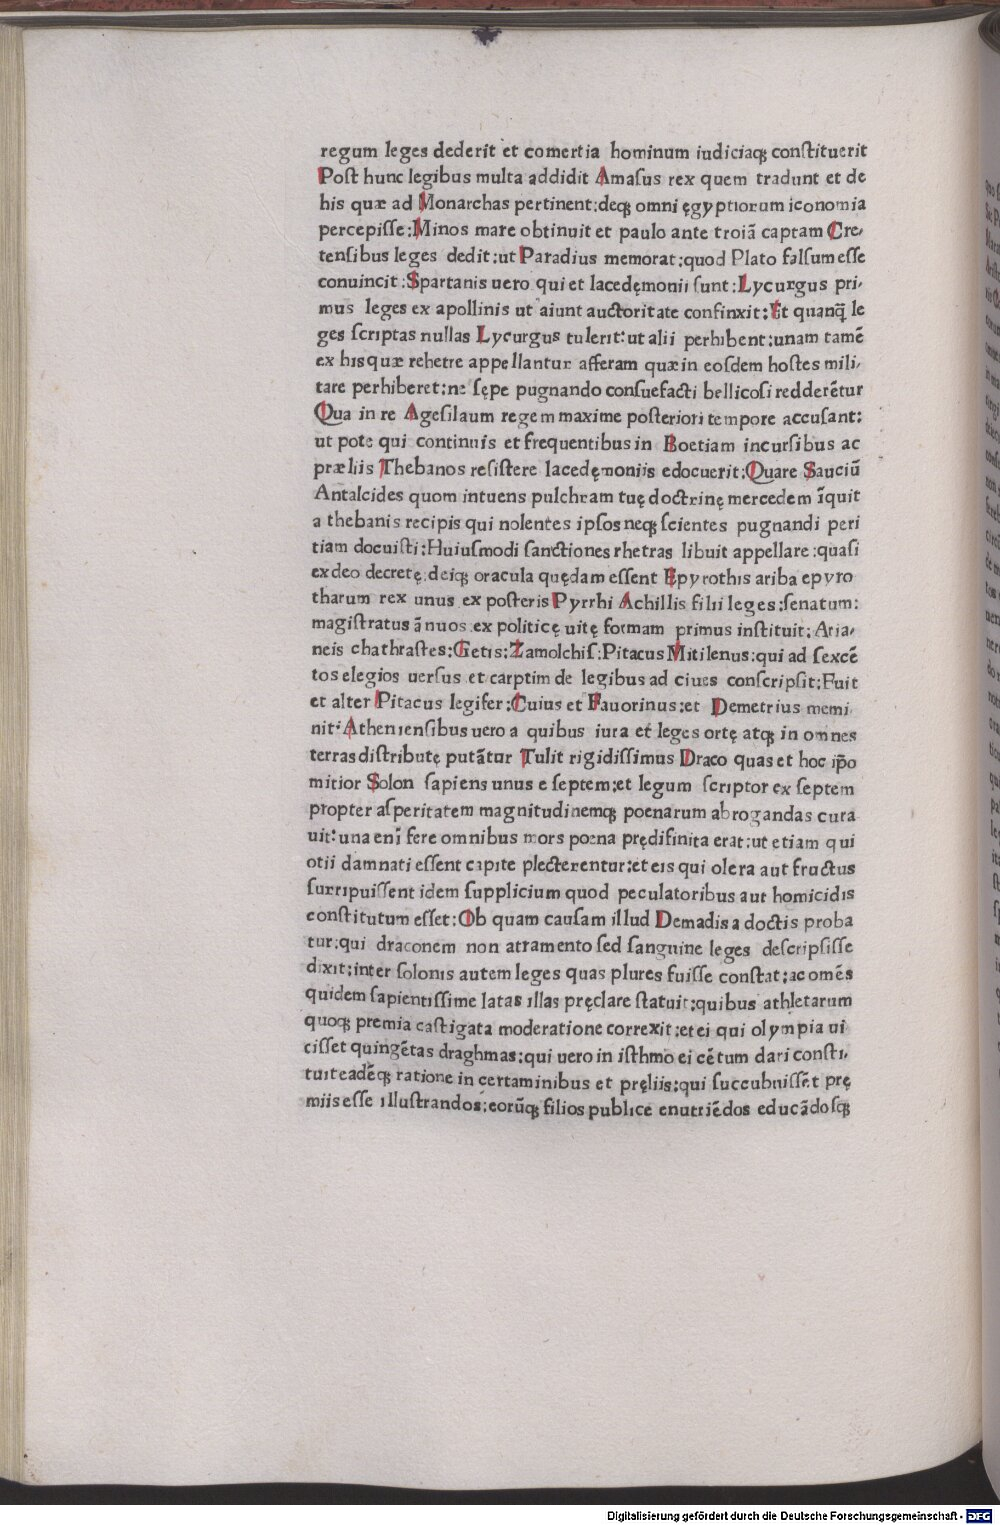 regum leges dederit et comertia hominum iudiciaqꝫ conſtituerit
Poſt hunc legibus multa addidit Amaſus rex quem tradunt et de
his quæ ad Monarchas pertinent:deqꝫ omni ęgyptiorum iconomia
percepiſſe:Minos mare obtinuit et paulo ante troiā captam Cre,
tenſibus leges dedit:ut Paradius memorat:quod Plato falſum eſſe
conuincit:Spartanis uero qui et lacedęmonii ſunt:Lycurgus pri,
mus leges ex apollinis ut aiunt auctoritate confinxit:Et quanq̃ le
ges ſcriptas nullas Lycurgus tulerit:ut alii perhibent:unam tamē
ex his quæ rehetre appellantur afferam quæ in eoſdem hoſtes mili,
tare perhiberet:ne ſępe pugnando conſuefacti bellicoſi redderētur
Qua in re Ageſilaum regem maxime poſteriori tempore accuſant:
ut pote qui continuis et frequentibus in Boetiam incurſibus ac
præliis Thebanos reſiſtere lacedęmoniis edocuerit:Quare Sauciū
Antalcides quom intuens pulchram tuę doctrinę mercedem īquit
a thebanis recipis qui nolentes ipſos neqꝫ ſcientes pugnandi peri
tiam docuiſti:Huiuſmodi ſanctiones rhetras libuit appellare:quaſi
ex deo decretę deiqꝫ oracula quędam eſſent Epyrothis ariba epyro
tharum rex unus ex poſteris Pyrrhi Achillis filii leges:ſenatum:
magiſtratus ānuos ex politicę uitę formam primus inſtituit:Aria,
neis chathraſtes:Getis:Zamolchiſ:Pitacus Mitilenus:qui ad ſexcē
tos elegios uerſus et carptim de legibus ad ciues conſcripſit:Fuit
et alter Pitacus legifer:Cuius et Fauorinus:et Demetrius memi,
nit:Athenienſibus uero a quibus iura et leges ortę atqꝫ in omnes
terras diſtributę putātur Tulit rigidiſſimus Draco quas et hoc ip̄o
mitior Solon ſapiens unus e ſeptem:et legum ſcriptor ex ſeptem
propter aſperitatem magnitudinemqꝫ poenarum abrogandas cura
uit:una eni̅ fere omnibus mors poena prędifinita erat:ut etiam qui
otii damnati eſſent capite plecterentur:et eis qui olera aut fructus
ſurripuiſſent idem ſupplicium quod peculatoribus aut homicidis
conſtitutum eſſet:Ob quam cauſam illud Demadis a doctis proba
tur:qui draconem non atramento ſed ſanguine leges deſcripſiſſe
dixit:inter ſolonis autem leges quas plures fuiſſe conſtat:ac omēs
quidem ſapientiſſime latas illas pręclare ſtatuit:quibus athletarum
quoqꝫ premia caſtigata moderatione correxit:et ei qui olympia ui
ciſſet quingētas draghmas:qui uero in iſthmo ei cētum dari conſti,
tuit eadēqꝫ ratione in certaminibus et pręliis:qui ſuccubuiſſet prę
miis eſſe illuſtrandos:eorūqꝫ filios publice enutriēdos educādoſqꝫ
Digitalisierung gefördert durch die Deutsche Forschungsgemeinschaft - DFG